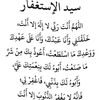 سيد الإستغفار
اللَّهُمَّ أَنْتَ رَبِّي لَا إِلَهَ إِلَّا أَنْتَ
خَلَقْتَنِي وَأَنَا عَبْدُكَ، وَأَنَا عَلَى عَهْدِكَ
وَوَعْدِكَ مَا اسْتَطَعْتُ، أَعُوذُ بِكَ مِنْ شَرِّ
مَا صَنَعْتُ، أَبُوءُ لَكَ بِنِعْمَتِكَ عَلَيَّ،
وَأَبُوءُ لَكَ بِذَنْبِي فَاغْفِرْ لِي
فَإِنَّهُ لَا يَغْفِرُ الذُّنُوبَ إِلَّا أَنْتَ